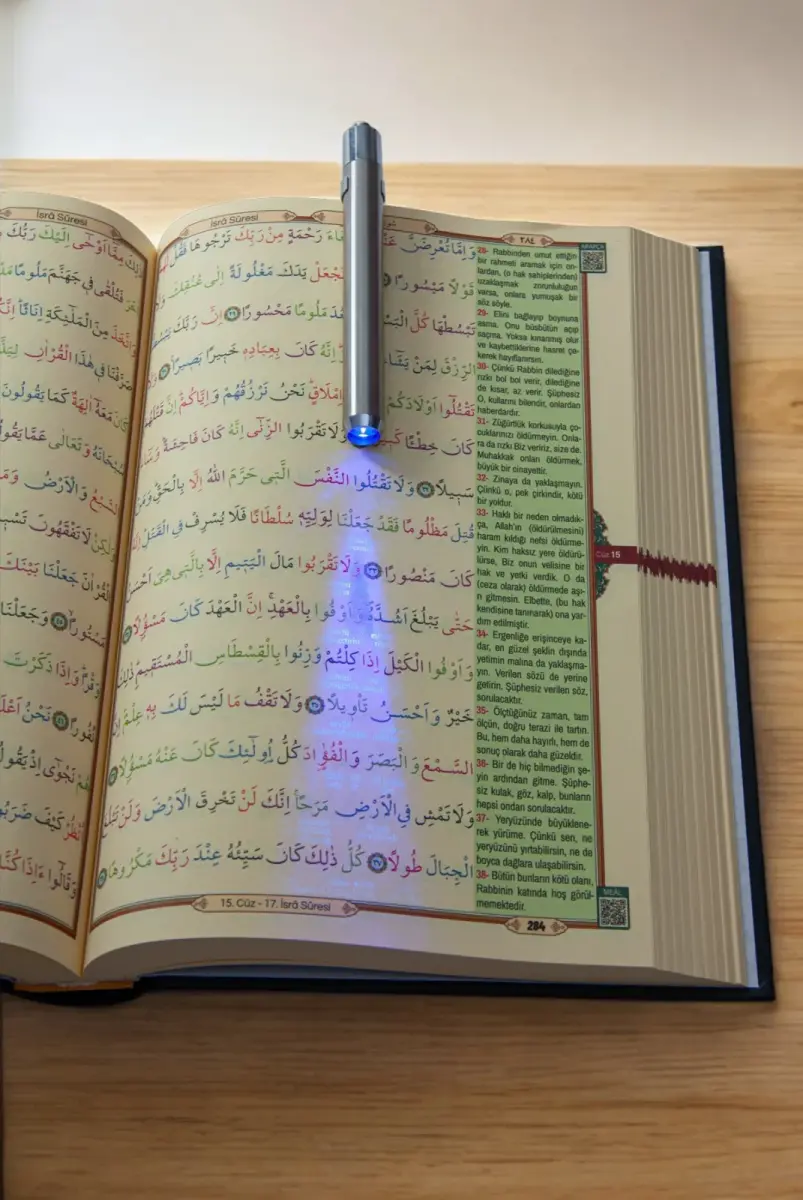 İsrâ Sûresi
اِلَيْكَ رَبُّكَ
فَتُلْقٰى فِي جَهَنَّمَ مَلُومًا
مِنَ الْمَلٰٓئِكَةِ اِنَاثًا
صَرَّفْنَا فِي هٰذَا الْقُرْاٰنِ
مَعَهُٓ اٰلِهَةٌ كَمَا يَقُولُونَ
سُبْحَانَهُ وَتَعَالٰى عَمَّا
السَّبْعُ وَالْاَرْضُ
لَا تَفْقَهُونَ
جَعَلْنَا بَيْنَكَ
مَسْتُورًا ﴿٤٥﴾ وَجَعَلْنَا
وَاِذَا ذَكَرْتَ
نُفُورًا ﴿٤٦﴾ نَحْنُ
نَجْوٰٓى اِذْ يَقُولُ
كَيْفَ ضَرَبُوا
وَقَالُٓوا ءَاِذَا كُنَّا
İsrâ Sûresi
٢٨٤
وَاِمَّا تُعْرِضَنَّ رَحْمَةٍ مِنْ رَبِّكَ تَرْجُوهَا فَقُلْ
قَوْلًا مَيْسُورًا يَدَكَ مَغْلُولَةً اِلٰى عُنُقِكَ
تَبْسُطْهَا كُلَّ مَلُومًا مَحْسُورًا ﴿٢٩﴾ اِنَّ رَبَّكَ
الرِّزْقَ لِمَنْ اِنَّهُ كَانَ بِعِبَادِهِ خَبِيرًا بَصِيرًا ﴿٣٠﴾
تَقْتُلُٓوا اَوْلَادَكُمْ نَحْنُ نَرْزُقُهُمْ وَاِيَّاكُمْ اِنَّ قَتْلَهُمْ
كَانَ خِطْـًٔا وَلَا تَقْرَبُوا الزِّنٰٓى اِنَّهُ كَانَ فَاحِشَةً
سَبِيلًا ﴿٣٢﴾ وَلَا تَقْتُلُوا النَّفْسَ الَّتِي حَرَّمَ اللّٰهُ اِلَّا بِالْحَقِّ وَمَنْ
قُتِلَ مَظْلُومًا فَقَدْ جَعَلْنَا لِوَلِيِّهِ سُلْطَانًا فَلَا يُسْرِفْ فِي الْقَتْلِ
كَانَ مَنْصُورًا ﴿٣٣﴾ وَلَا تَقْرَبُوا مَالَ الْيَتِيمِ اِلَّا بِالَّتِي هِيَ اَحْسَنُ
حَتّٰى يَبْلُغَ اَشُدَّهُ وَاَوْفُوا بِالْعَهْدِ اِنَّ الْعَهْدَ كَانَ مَسْؤُلًا ﴿٣٤﴾
وَاَوْفُوا الْكَيْلَ اِذَا كِلْتُمْ وَزِنُوا بِالْقِسْطَاسِ الْمُسْتَقِيمِ ذٰلِكَ
خَيْرٌ وَاَحْسَنُ تَأْوِيلًا ﴿٣٥﴾ وَلَا تَقْفُ مَا لَيْسَ لَكَ بِهِ عِلْمٌ
السَّمْعَ وَالْبَصَرَ وَالْفُؤَادَ كُلُّ اُو۬لٰٓئِكَ كَانَ عَنْهُ مَسْؤُلًا ﴿٣٦﴾
وَلَا تَمْشِ فِي الْاَرْضِ مَرَحًا اِنَّكَ لَنْ تَخْرِقَ الْاَرْضَ وَلَنْ تَبْلُغَ
الْجِبَالَ طُولًا ﴿٣٧﴾ كُلُّ ذٰلِكَ كَانَ سَيِّئُهُ عِنْدَ رَبِّكَ مَكْرُوهًا ﴿٣٨﴾
15. Cüz - 17. İsrâ Sûresi
28- Rabbinden umut ettiğin
bir rahmeti aramak için on-
lardan, (o hak sahiplerinden)
uzaklaşmak zorunluluğun
varsa, onlara yumuşak bir
söz söyle.
29- Elini bağlayıp boynuna
asma. Onu büsbütün açıp
saçma. Yoksa kınanmış olur
ve kaybettiklerine hasret çe-
kerek hayıflanırsın.
30- Çünkü Rabbin dilediğine
rızkı bol bol verir, dilediğine
de kısar, az verir. Şüphesiz
O, kullarını bilendir, onlardan
haberdardır.
31- Züğürtlük korkusuyla ço-
cuklarınızı öldürmeyin. Onla-
ra da rızkı Biz veririz, size de.
Muhakkak onları öldürmek,
büyük bir cinayettir.
32- Zinaya da yaklaşmayın.
Çünkü o, pek çirkindir, kötü
bir yoldur.
33- Haklı bir neden olmadık-
ça, Allah'ın (öldürülmesini)
haram kıldığı nefsi öldürme-
yin. Kim haksız yere öldürü-
lürse, Biz onun velisine bir
hak ve yetki verdik. O da
(ceza olarak) öldürmede aşı-
rı gitmesin. Elbette, (bu hak
kendisine tanınarak) ona yar-
dım edilmiştir.
34- Ergenliğe erişinceye ka-
dar, en güzel şeklin dışında
yetimin malına da yaklaşma-
yın. Verilen sözü de yerine
getirin. Şüphesiz verilen söz,
sorulacaktır.
35- Ölçtüğünüz zaman, tam
ölçün, doğru terazi ile tartın.
Bu, hem daha hayırlı, hem de
sonuç olarak daha güzeldir.
36- Bir de hiç bilmediğin şe-
yin ardından gitme. Şüphe-
siz kulak, göz, kalp, bunların
hepsi ondan sorulacaktır.
37- Yeryüzünde büyüklene-
rek yürüme. Çünkü sen, ne
yeryüzünü yırtabilirsin, ne de
boyca dağlara ulaşabilirsin.
38- Bütün bunların kötü olanı,
Rabbinin katında hoş görül-
memektedir.
ARAPÇA
Cüz 15
MEÂL
284